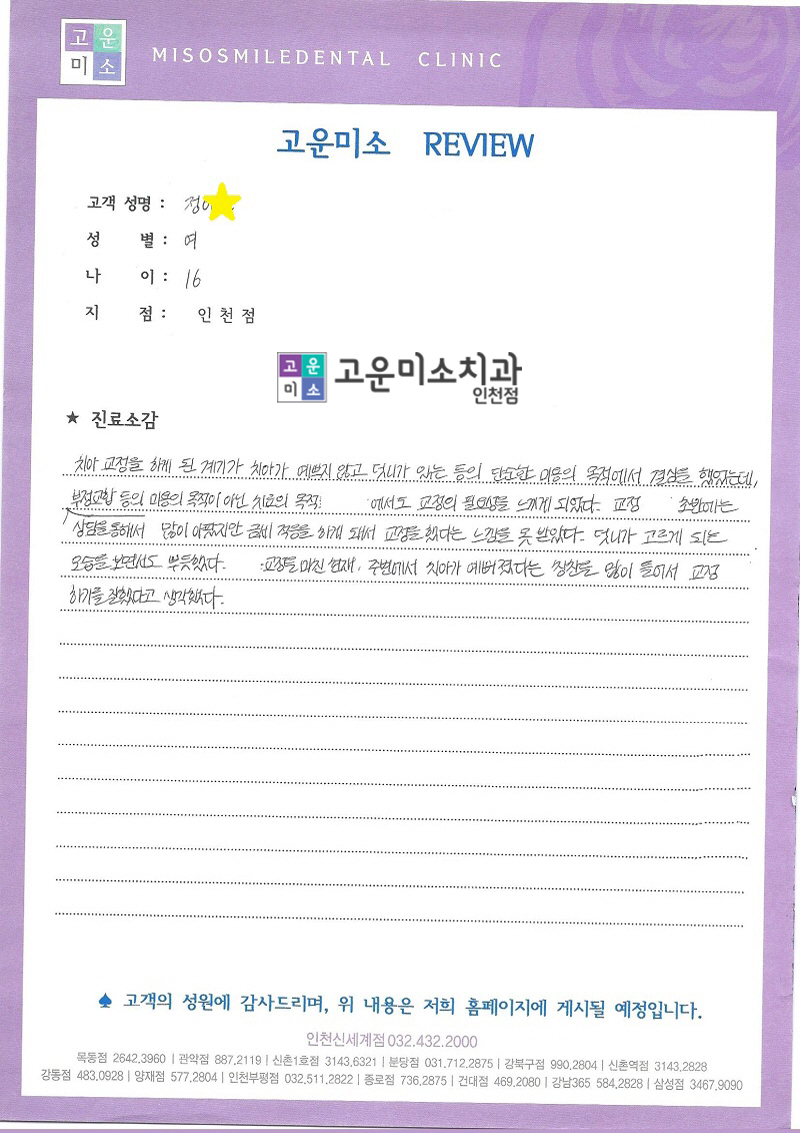 고운
미소
MISOSMILEDENTAL CLINIC
고운미소 REVIEW
고객 성명 : 정
성 별 : 여
나 이 : 16
지 점 : 인천점
고운
미소
고운미소치과
인천점
★ 진료소감
치아 교정을 하게 된 계기가 치아가 예쁘지 않고 덧니가 있는 등의 단순한 미용의 목적에서 결심을 했었는데,
부정교합 등의 미용의 목적이 아닌 치료의 목적 에서도 교정의 필요성을 느끼게 되었다. 교정 초반에는
상담을 통해서 많이 아팠지만 금비 적응을 하게 돼서 교정을 했다는 느낌을 못 받았다. 덧니가 고르게 되는
모습을 보면서도 뿌듯했다. 교정을 마친 현재, 주변에서 치아가 예뻐졌다는 칭찬을 많이 들어서 교정
하기를 잘했다고 생각했다.
♠ 고객의 성원에 감사드리며, 위 내용은 저희 홈페이지에 게시될 예정입니다.
인천신세계점 032.432.2000
목동점 2642.3960 | 관악점 887.2119 | 신촌1호점 3143.6321 | 분당점 031.712.2875 | 강북구점 990.2804 | 신촌역점 3143.2828
강동점 483.0928 | 양재점 577.2804 | 인천부평점 032.511.2822 | 종로점 736.2875 | 건대점 469.2080 | 강남365 584.2828 | 삼성점 3467.9090